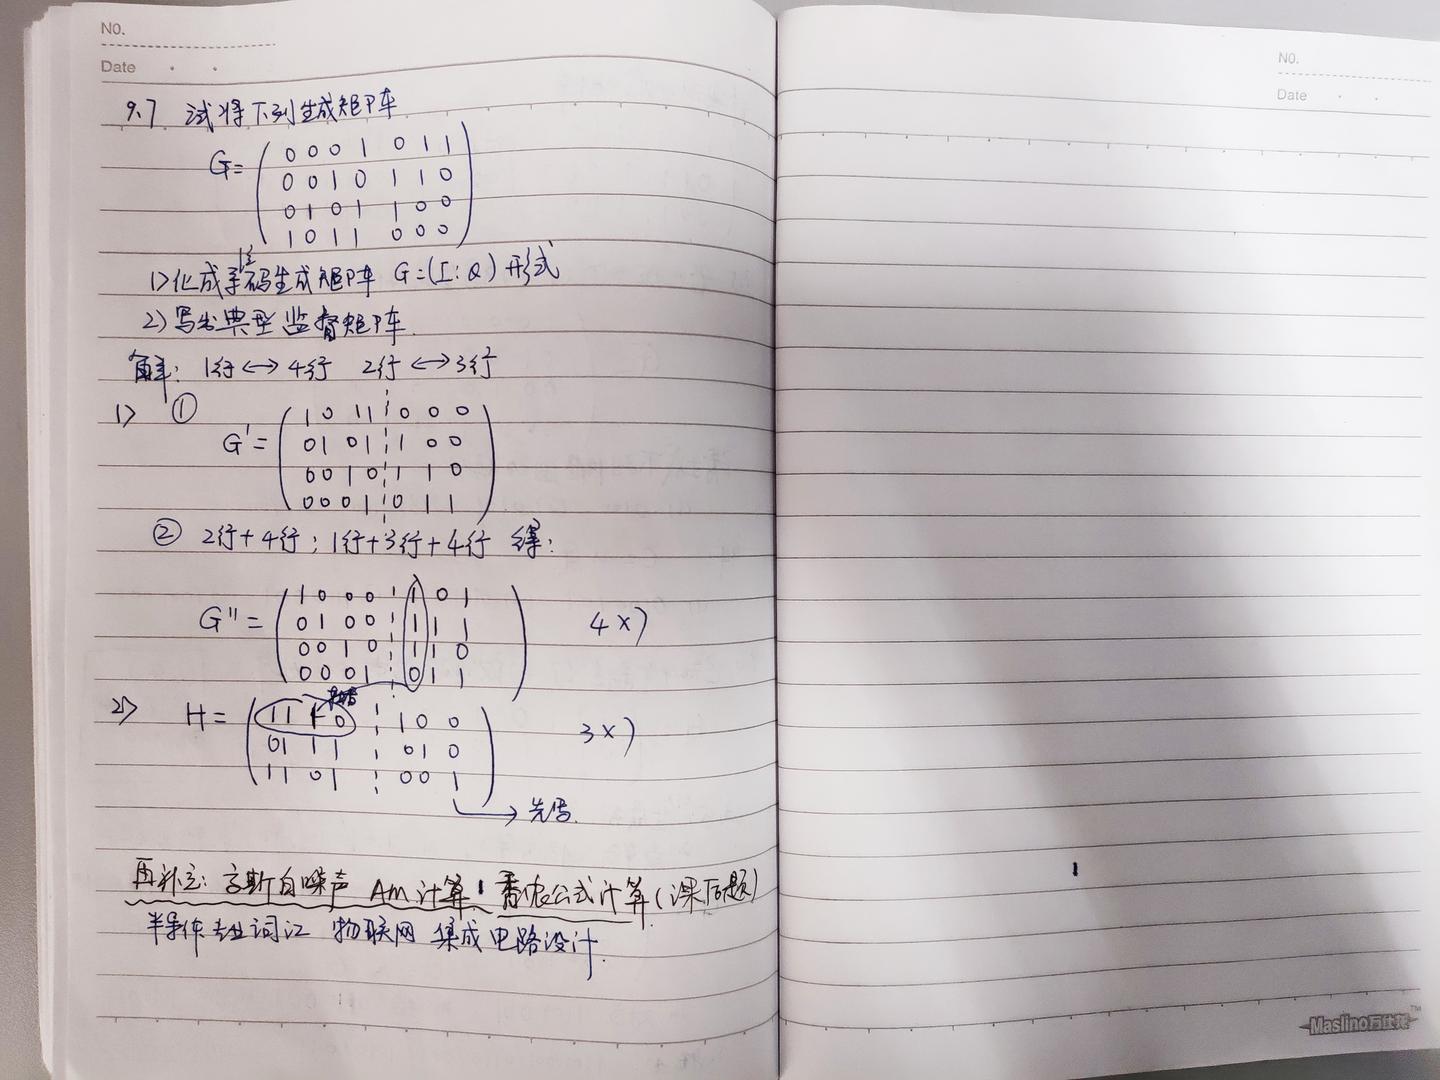 NO.
Date
9.7 试将下列生成矩阵
G= ( 0 0 0 1 0 1 1
0 0 1 0 1 1 0
0 1 0 1 1 0 0
1 0 1 1 0 0 0 )
1>化成系统码生成矩阵 G=(I:Q)形式
2)写出典型监督矩阵.
解: 1行<->4行 2行<->3行
1> ①
G'= ( 1 0 1 1 0 0 0
0 1 0 1 1 0 0
0 0 1 0 1 1 0
0 0 0 1 0 1 1 )
② 2行+4行; 1行+3行+4行 得:
G''= ( 1 0 0 0 1 0 1
0 1 0 0 1 1 1
0 0 1 0 1 1 0
0 0 0 1 0 1 1 ) 4×7
2>
H= ( 1 1 1 0 1 0 0
0 1 1 1 0 1 0
1 1 0 1 0 0 1 ) 3×7
先写.
高斯白噪声 Am计算 香农公式计算(课后题)
半导体专业词汇 物联网 集成电路设计.
NO.
Date
Maslino